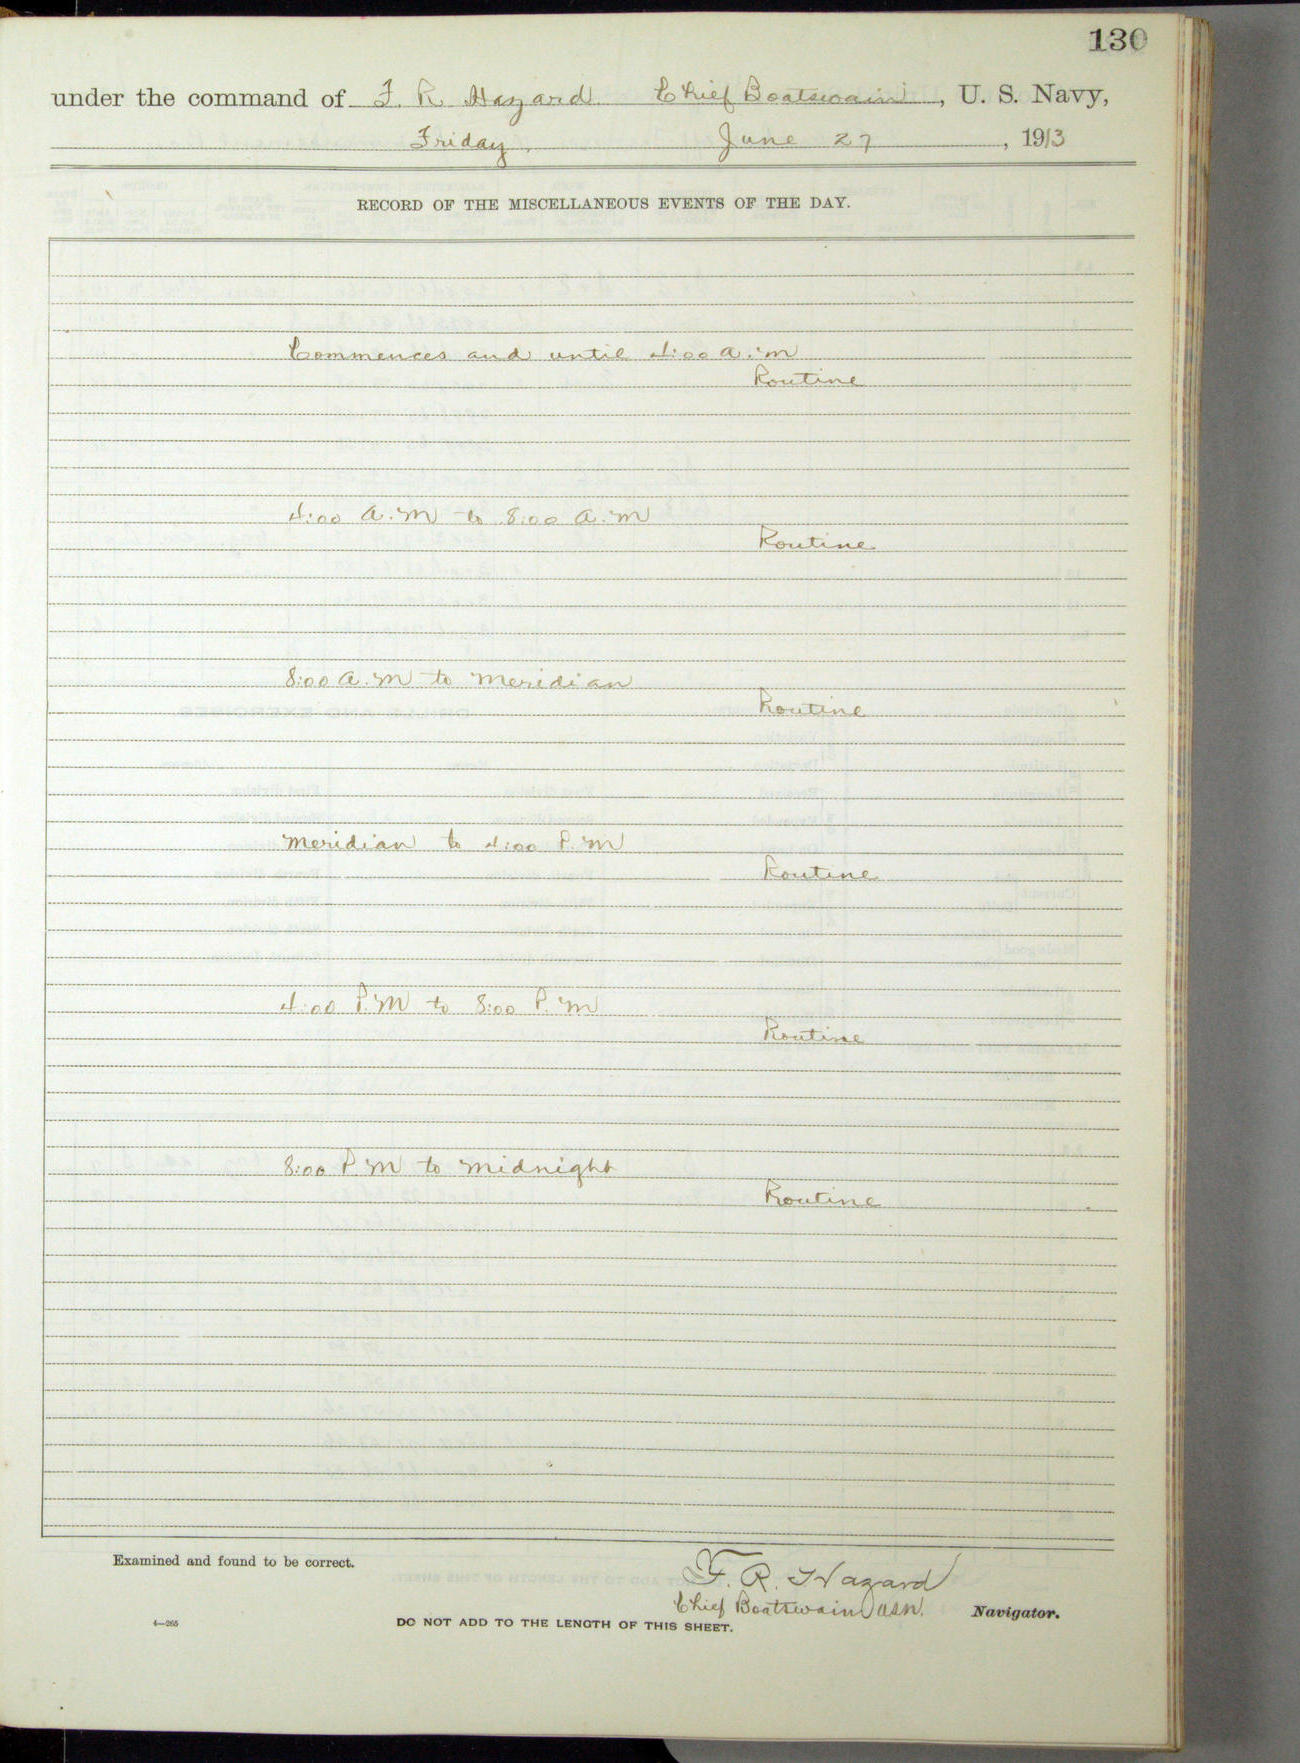 130
under the command of F. R. Hazard Chief Boatswain, U. S. Navy,
Friday, June 27, 1913
RECORD OF THE MISCELLANEOUS EVENTS OF THE DAY.
Commences and until 4:00 a.m
Routine
4:00 A.M to 8:00 A.M
Routine
8:00 A.M to Meridian
Routine
Meridian to 4:00 P.M
Routine
4:00 P.M to 8:00 P.M
Routine
8:00 P M to Midnight
Routine
Examined and found to be correct.
F. R. Hazard
Chief Boatswain USN. Navigator.
4—265 DO NOT ADD TO THE LENGTH OF THIS SHEET.